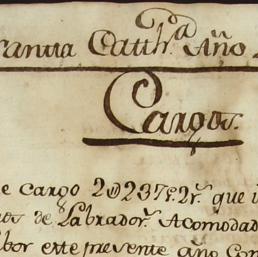 Santa Cath.ª Año
Cargos.
e cargo 2@237f.2r. que
nos de Labrador.s Acomodad
bor este presente año con